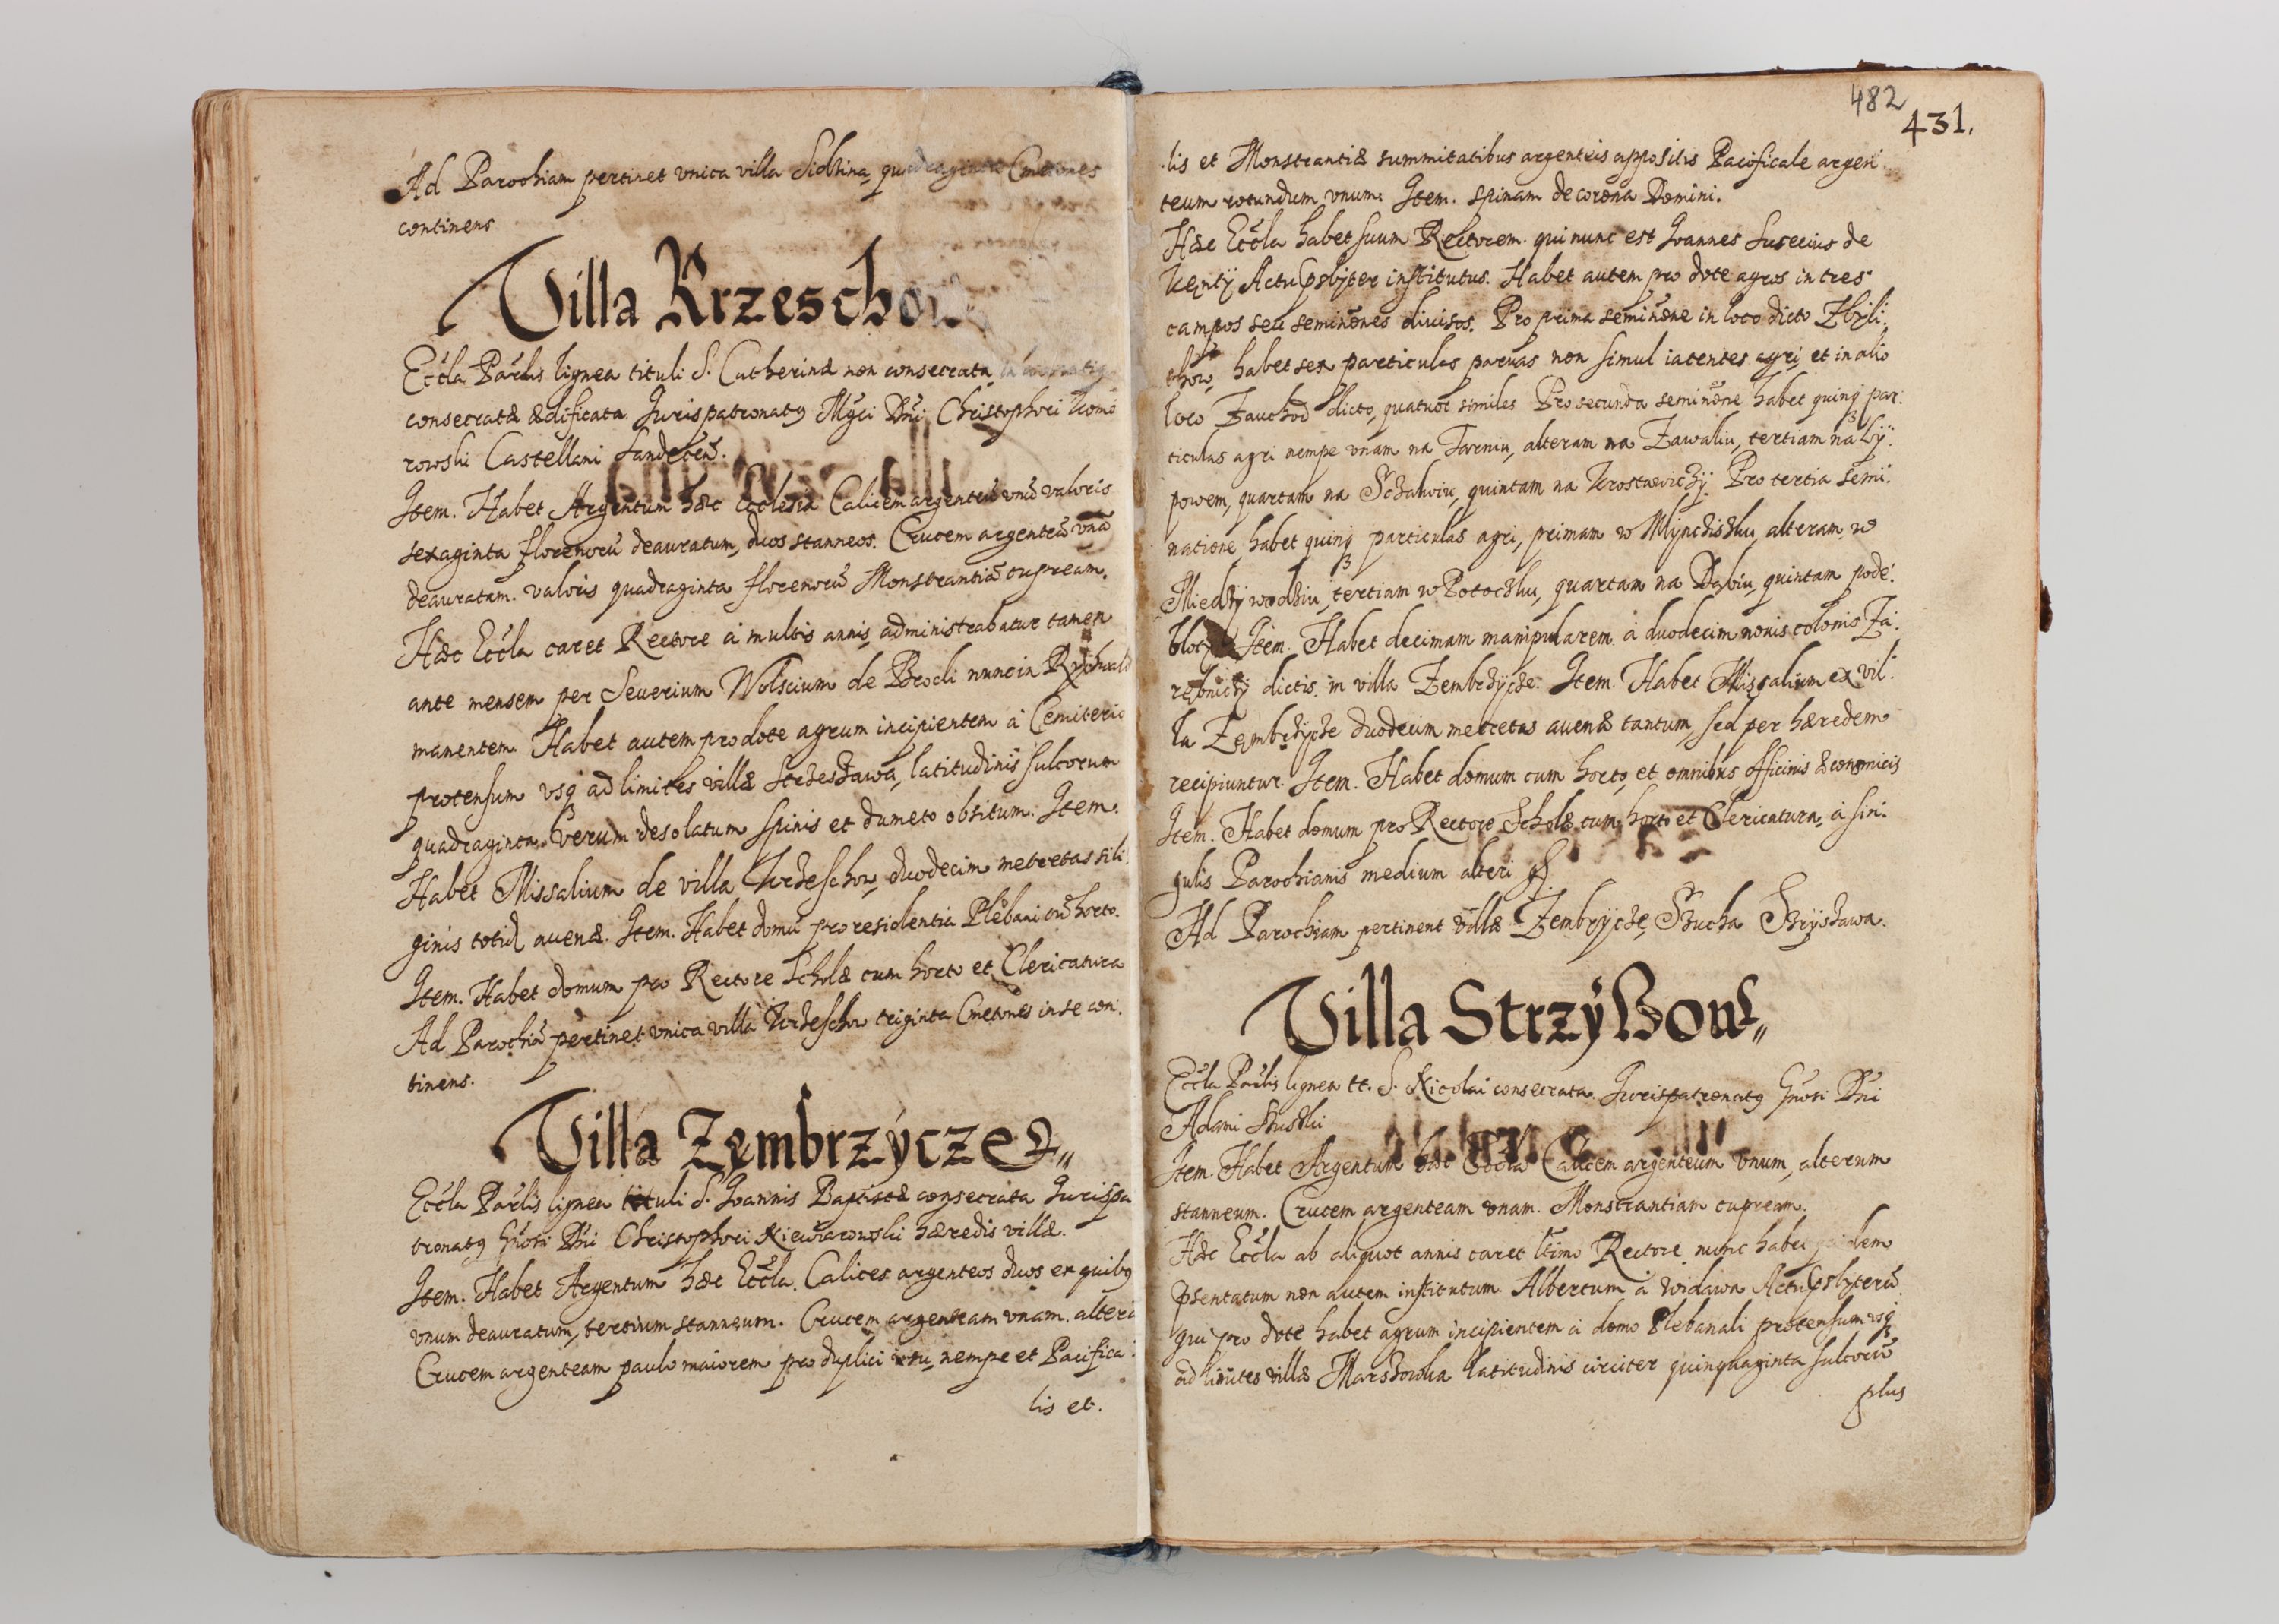 Ad Parochiam pertinet vnica villa Sidzina, quadraginta Cmetones
continens
Villa Krzeschow
Eccla Parlis lignea tituli S. Catherinæ non consecrata
consecratæ ædificata. Jurispatronatq Mgci Dni Christophori Komo
rowski Castellani Sandeceñ.
Item. Habet Argentum hæc Ecclesia Calicem argenteū vnū valoris
sexaginta florenorū deauratum, duos stanneos. Crucem argenteā vnā
deauratam. valoris quadraginta florenorū Monstrantiā cupream.
Hæc Eccla caret Rectore à multis annis, administrabatur tamen
ante mensem per Seuerium Wolscium de Brocli nunc in Rychwald
manentem. Habet autem pro dote agrum incipientem à Cemiterio
protensum vsq ad limites villæ Strzeszawa, latitudinis sulcorum
quadraginta. Verum desolatum spinis et dumeto obsitum. Item.
Habet Missalium de villa Krzeschow, duodecim metretas sili
ginis totid auenæ. Item. Habet domū pro residentia Plebani cū horto.
Item. Habet domum pro Rectore Scholæ cum horto et Clericatura
Ad Parochiā pertinet vnica villa Krzeschow triginta Cmetones in se con:
tinens.
Villa Zembrzycze
Eccla Parlis lignea tituli S. Joannis Baptistæ consecrata Jurispa
tronatq Gnosi Dni Christophori Niewiarowski hæredis villæ.
Item. Habet Argentum hæc Eccla. Calices argenteos duos ex quibq
vnum deauratum, tertium stanneum. Crucem argenteam vnam. alterā
Crucem argenteam paulo maiorem pro duplici vsu, nempe et Pacifica:
lis et.
482
431.
lis et Monstrantiæ summitatibus argenteis appositis Pacificale argen
teum rotundum vnum. Item. spinam de corona Domini.
Hæc Eccla habet suum Rectorem. qui nunc est Joannes Susecius de
Kenty Actu psbiter institutus. Habet autem pro dote agros in tres
campos seu seminōnes diuisos. Pro prima seminōne in loco dicto Zbyli:
thow, habet sex particulas paruas non simul iacentes agri, et in alio
loco Zauchod dicto, quatuor similes Pro secunda seminōne habet quinq par:
ticulas agri nempe vnam na Tarniu, alteram na Zawaliu, tertiam na Ly:
powem, quartam na Schalwiu, quintam na Krostawiczy. Pro tertia semi:
natione habet quinq particulas agri, primam w Mlynczisku, alteram w
Miedzy wodziu, tertiam w Potoczku, quartam na Dąbiu, quintam pode:
bloty Item. Habet decimam manipularem à duodecim nouis colonis Za:
rębniczy dictis in villa Zembrzycze. Item. Habet Missalium ex vil:
la Zembrzycze duodecim metretas auenæ tantum, sed per hæredem
recipiuntur. Item. Habet domum cum horto, et omnibus officinis æconomicis
Item. Habet domum pro Rectore Scholæ cum horto et Clericatura, à sin:
gulis Parochianis medium alteri
Ad Parochiam pertinent villæ Zembrzycze, Sucha Strysawa.
Villa Strzyzow
Eccla Parlis lignea tt. S. Nicolai consecrata. Jurispatronatq Gnosi Dni
Adami
Item. Habet Argentum hæc Eccla Calicem argenteum vnum, alterum
stanneum. Crucem argenteam vnam. Monstrantiam cupream.
Hæc Eccla ab aliquot annis caret ltimo Rectore. nunc habet quidem
psentatum non autem institutum Albertum à Widawa Actu psbyterū.
qui pro dote habet agrum incipientem à domo Plebanali protensum vsq
ad limites villæ Marszowka latitudinis circiter quinquaginta sulcorū
plus